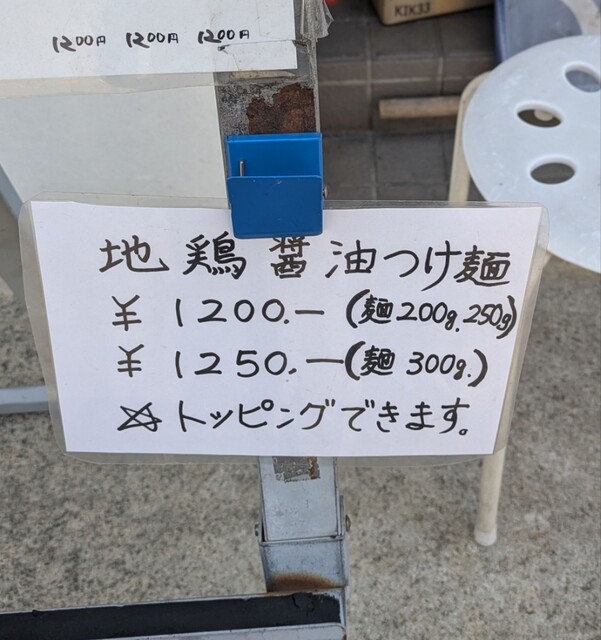 1200円 1200円 1200円
KIK33
地鶏醤油つけ麺
¥1200.ー(麺200g.250g)
¥1250.ー(麺 300g.)
☆トッピングできます。